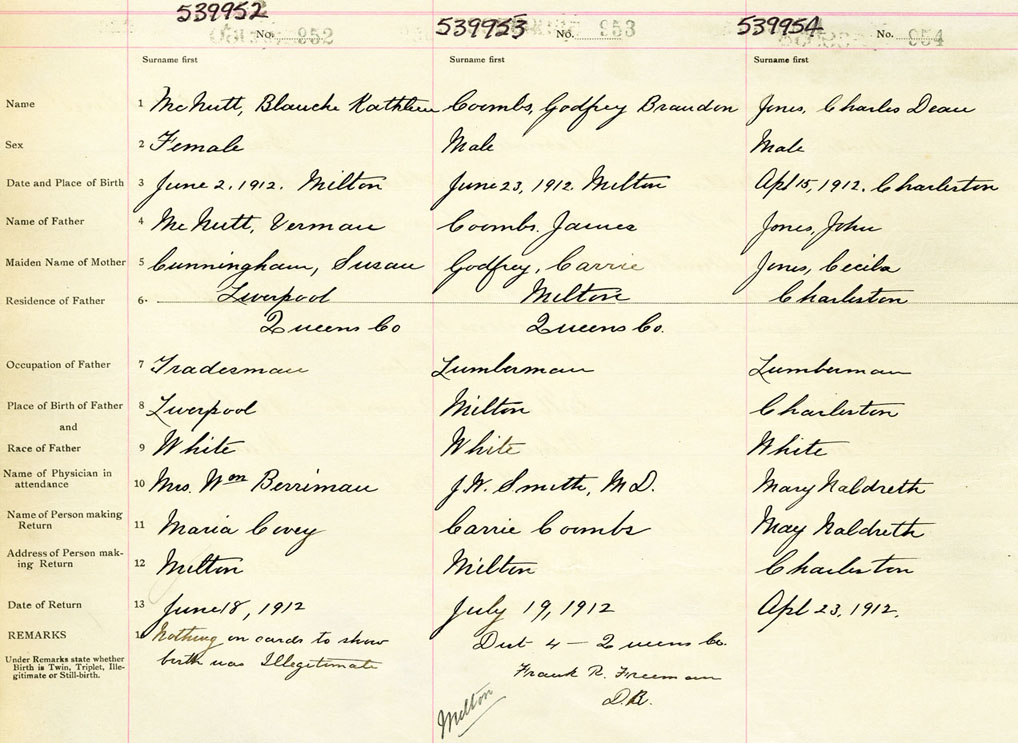 539952 539953 539954
No. 952 No. 953 No. 954
Surname first Surname first Surname first
Name 1 McNutt, Blanche Kathleen Coombs, Godfrey Brandon Jones, Charles Dean
Sex 2 Female Male Male
Date and Place of Birth 3 June 2, 1912. Milton June 23, 1912. Milton Apl 15, 1912. Charleston
Name of Father 4 McNutt, Vernan Coombs. James Jones, John
Maiden Name of Mother 5 Cunningham, Susan Godfrey, Carrie Jones, Cecila
Residence of Father 6. Liverpool Milton Charleston
Queens Co Queens Co.
Occupation of Father 7 Tradesman Lumberman Lumberman
Place of Birth of Father 8 Liverpool Milton Charleston
and
Race of Father 9 White White White
Name of Physician in
attendance 10 Mrs. Wm Berriman J.W. Smith, M.D. Mary Naldreth
Name of Person making
Return 11 Maria Covey Carrie Coombs May Naldreth
Address of Person mak-
ing Return 12 Milton Milton Charleston
Date of Return 13 June 18, 1912 July 19, 1912 Apl 23, 1912.
REMARKS 1 Nothing on cards to show Dist 4 – Queens Co.
Under Remarks state whether
Birth is Twin, Triplet, Ille-
gitimate or Still-birth.
birth was Illegitimate Frank R. Freeman
Milton D.R.